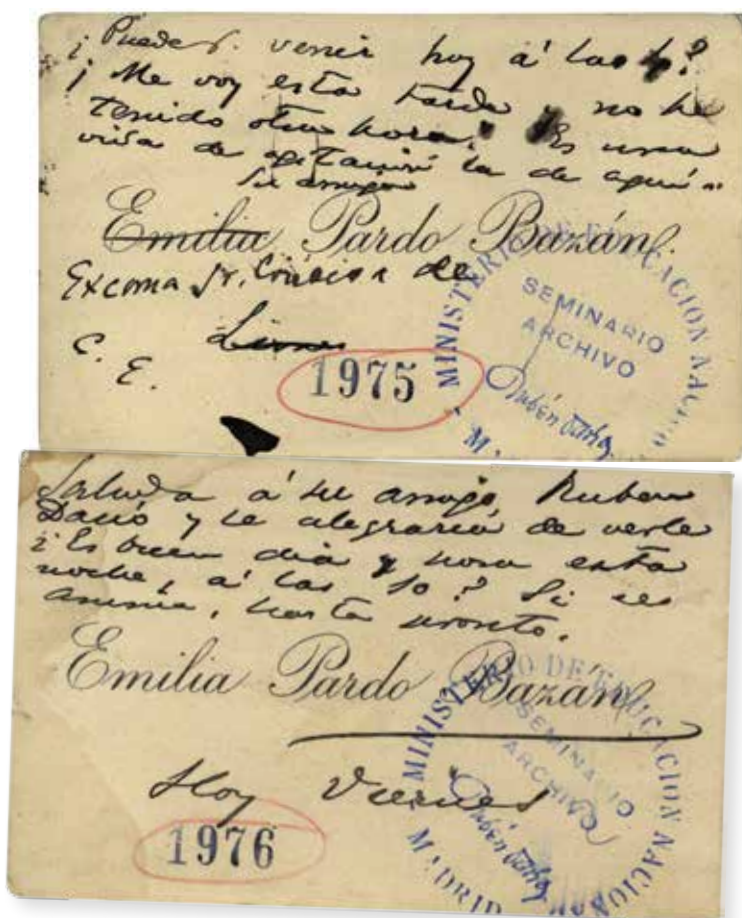 ¿Puede V. venir hoy á las
¡Me voy esta tarde y no he
tenido otra hora. Es una
vida de agitación la de aquí
Su amiga
Emilia Pardo Bazán
Excma Sr. de
C. E.
1975
MINISTERIO DE EDUCACION NACIO
SEMINARIO
ARCHIVO
Rubén Darío
Saluda á su amigo Ruben
Darió y se alegraria de verle
¿Es buen dia y hora esta
noche, á las 10? Si se
anima, hasta pronto.
Emilia Pardo Bazán
Hoy Viernes
1976
MINISTERIO DE EDUCACION NACIONAL
SEMINARIO
ARCHIVO
Rubén Darío
MADRID